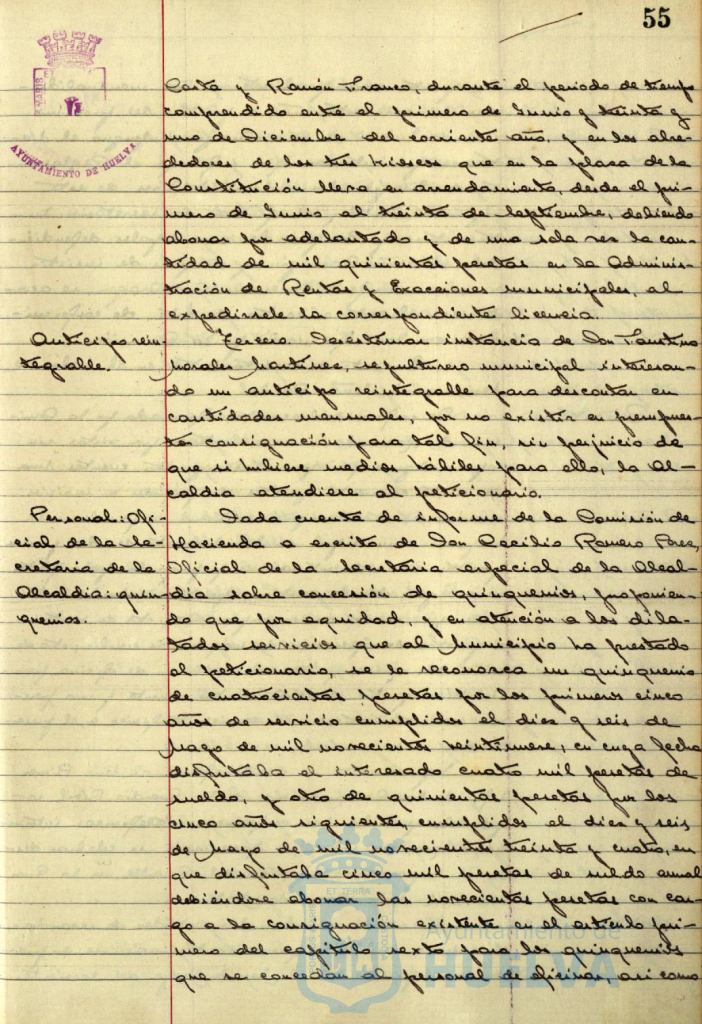 55
AYUNTAMIENTO DE HUELVA
Costa y Ramón Franco, durante el periodo de tiempo
comprendido entre el primero de Junio y treinta y
uno de Diciembre del corriente año, y en los alre-
dedores de los tres kioscos que en la plaza de la
Constitución lleva en arrendamiento, desde el pri-
mero de Junio al treinta de septiembre, debiendo
abonar por adelantado y de una sola vez la can-
tidad de mil quinientas pesetas en la Adminis-
tración de Rentas y Exacciones municipales, al
expedirsele la correspondiente licencia.
Anticipo rein-
tegrable.
Tercero. Desestimar instancia de Don Faustino
Morales Martinez, sepulturero municipal interesan-
do un anticipo reintegrable para descontar en
cantidades mensuales, por no existir en presupues-
tos consignación para tal fin, sin perjuicio de
que si hubiese medios hábiles para ello, la Al-
caldia atendiese al peticionario.
Personal: Ofi-
cial de la Se-
cretaria de la
Alcaldia: quin-
quenios.
Dada cuenta de informe de la Comisión de
Hacienda a escrito de Don Cecilio Romero Perez,
Oficial de la Secretaria especial de la Alcal-
dia sobre concesión de quinquenios, proponien-
do que por equidad, y en atención a los dila-
tados servicios que al Municipio ha prestado
el peticionario, se le reconozca un quinquenio
de cuatrocientas pesetas por los primeros cinco
años de servicio cumplidos el diez y seis de
Mayo de mil novecientos veintinueve, en cuya fecha
disfrutaba el interesado cuatro mil pesetas de
sueldo, y otro de quinientas pesetas por los
cinco años siguientes, cumplidos el diez y seis
de Mayo de mil novecientos treinta y cuatro, en
que disfrutaba cinco mil pesetas de sueldo anual
debiéndose abonar las novecientas pesetas con car-
go a la consignación existente en el artículo pri-
mero del capítulo sexto para los quinquenios
que se concedan al personal de oficinas, asi como
HUELVA